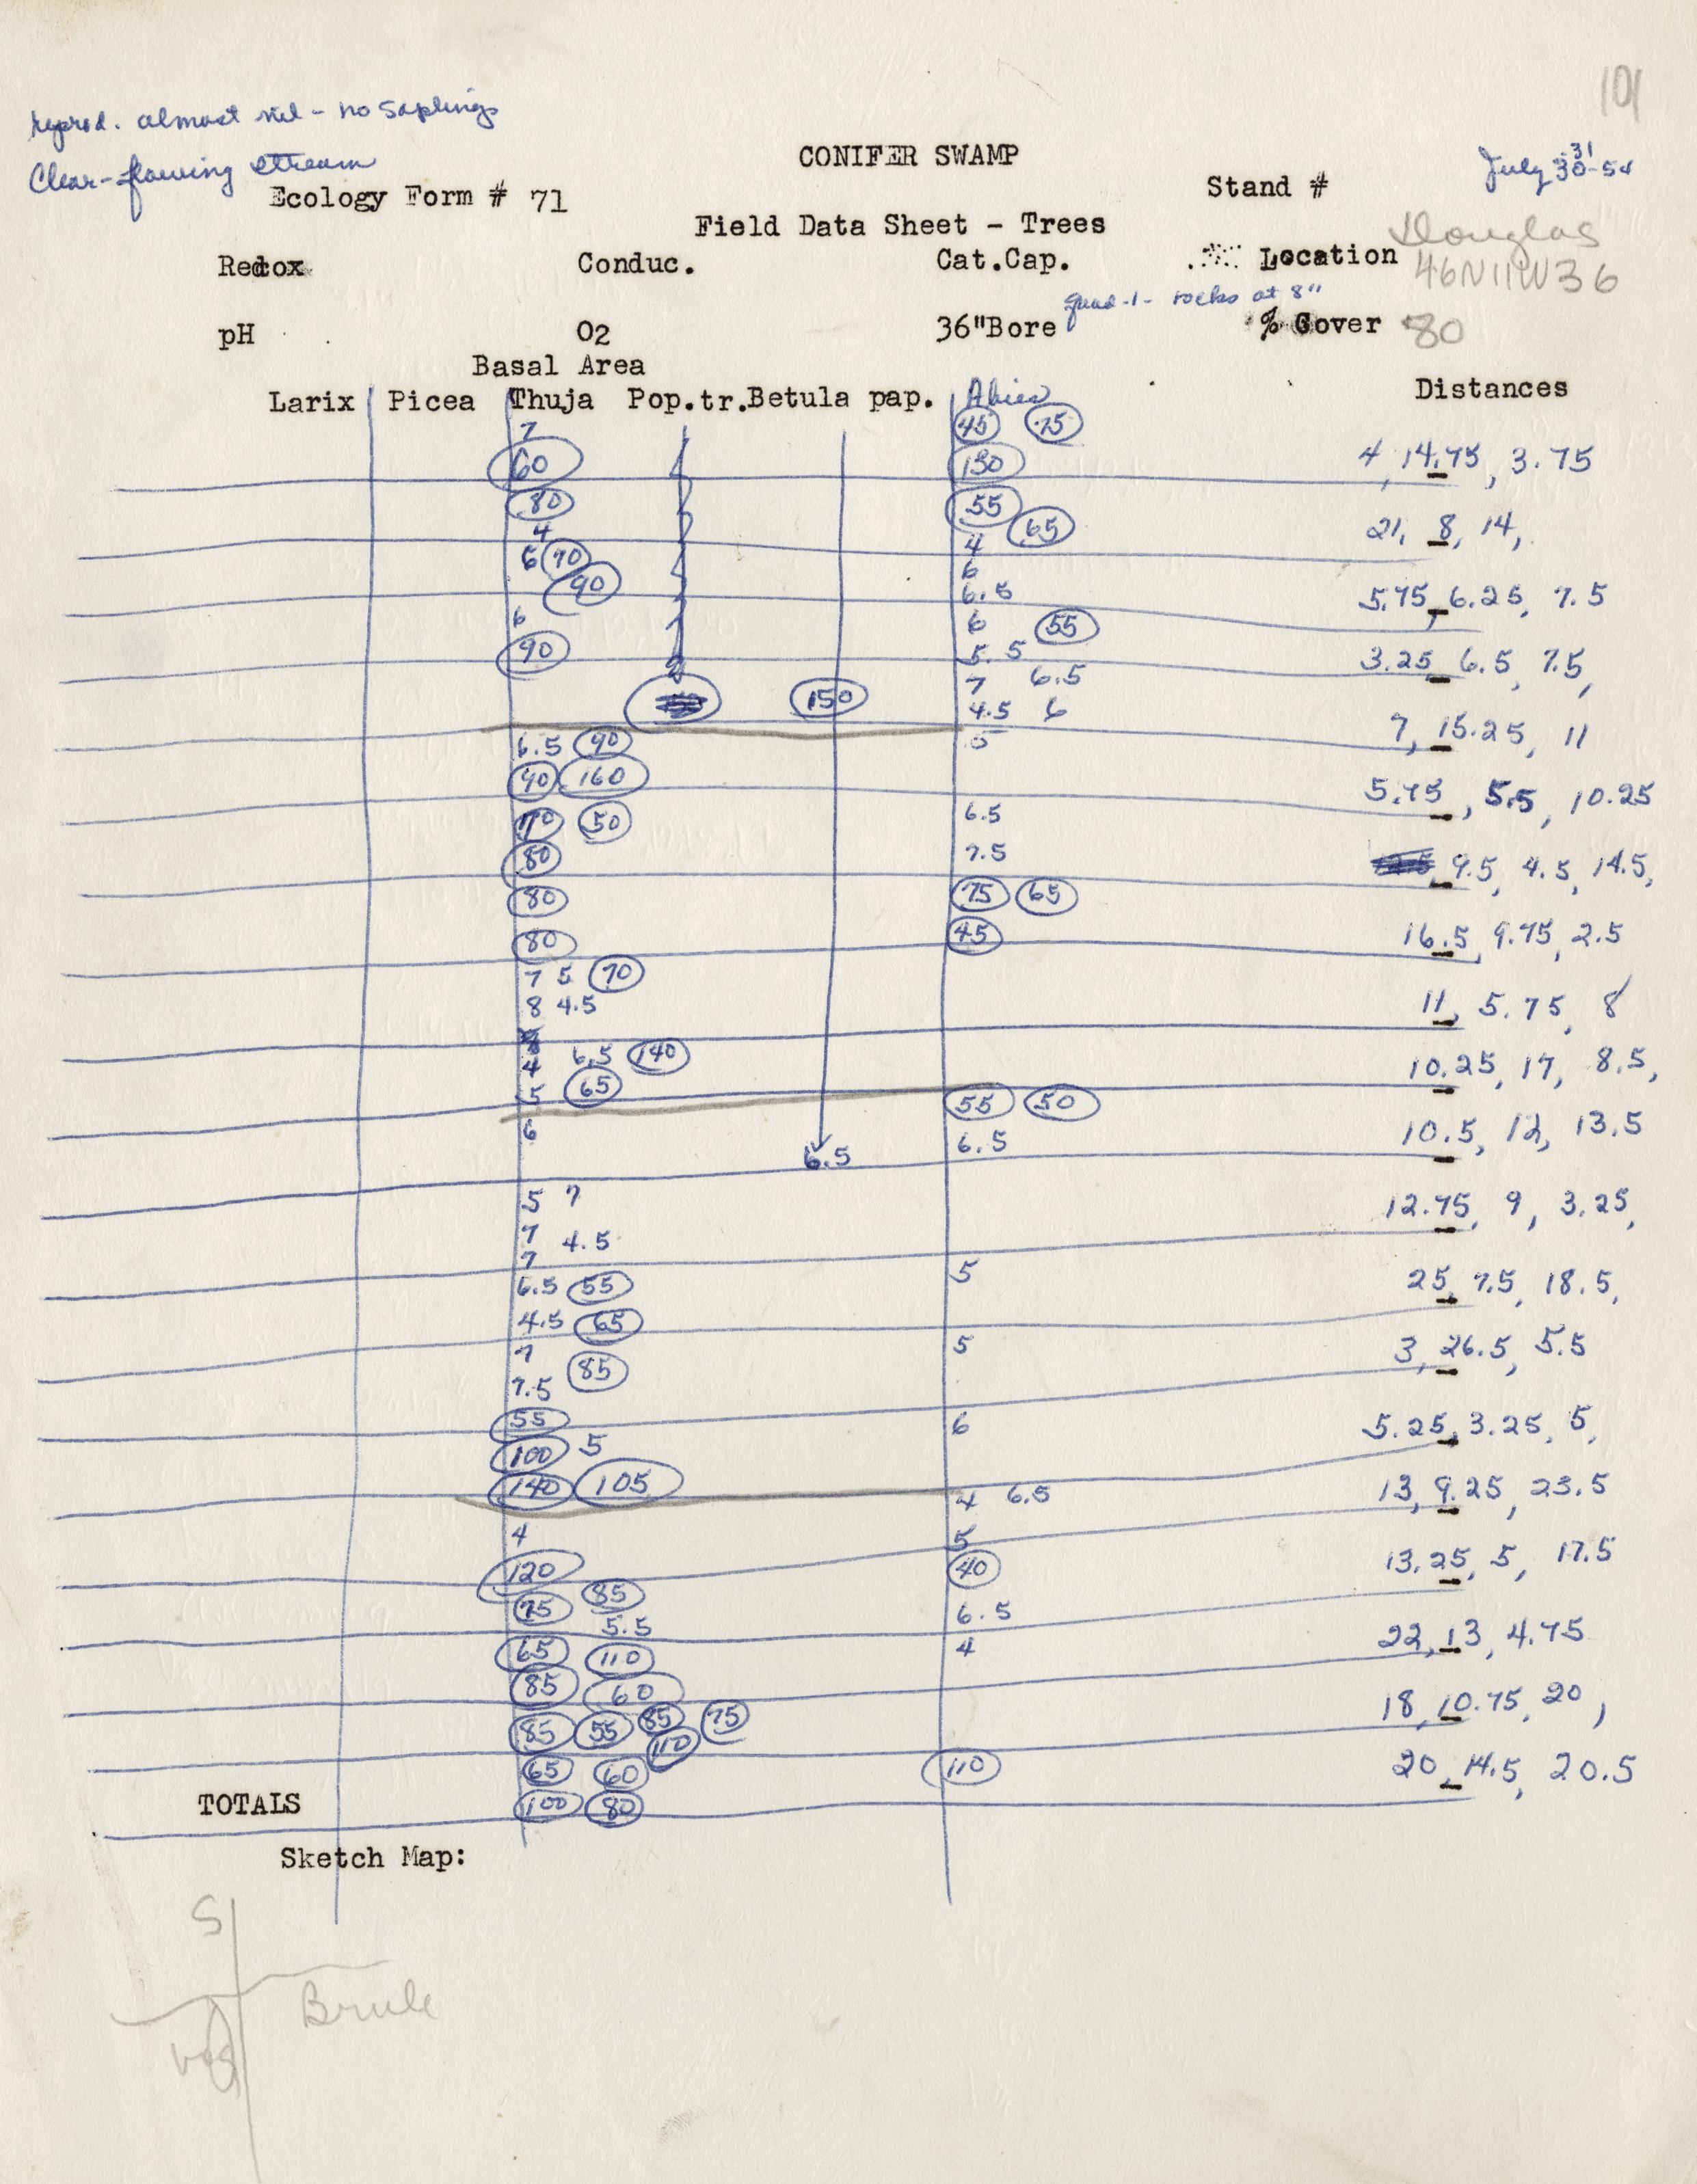 101
reprod. almost nil - no saplings
Clear-flowing stream
CONIFER SWAMP
July 30-31-54
Ecology Form # 71
Stand #
Field Data Sheet - Trees
Douglas
Redox Conduc. Cat.Cap. Location 46N11W36
quad-1- rocks at 8"
pH O2 36"Bore % Cover 80
Basal Area
Larix Picea Thuja Pop.tr. Betula pap. Abies Distances
7 45 75
60 130 4, 14.75, 3.75
80 55
4 65 21, 8, 14,
4
6 70 6
90 6.5 5.75, 6.25, 7.5
6 6 55
90 5.5 3.25, 6.5, 7.5,
7 6.5
150 4.5 6
5 7, 15.25, 11
6.5 90
40 160 5.75, 5.5, 10.25
70 50 6.5
80 7.5 9.5, 4.5, 14.5,
80 75 65
80 45 16.5, 9.75, 2.5
7 5 70
8 4.5 11, 5.75, 8
4 6.5 140 10.25, 17, 8.5,
5 65 55 50
6 6.5 6.5 10.5, 12, 13.5
5 7 12.75, 9, 3.25,
7 4.5
7 5
6.5 55 25, 7.5, 18.5,
4.5 65
7 85 5 3, 26.5, 5.5
7.5
55 6 5.25, 3.25, 5,
100 5
140 105 4 6.5 13, 9.25, 23.5
4 5
120 40 13.25, 5, 17.5
75 85 6.5
5.5
65 110 4 22, 13, 4.75
85 60
85 55 85 75 18, 10.75, 20,
110
65 60 110 20, 14.5, 20.5
TOTALS 100 80
Sketch Map:
S
Brule